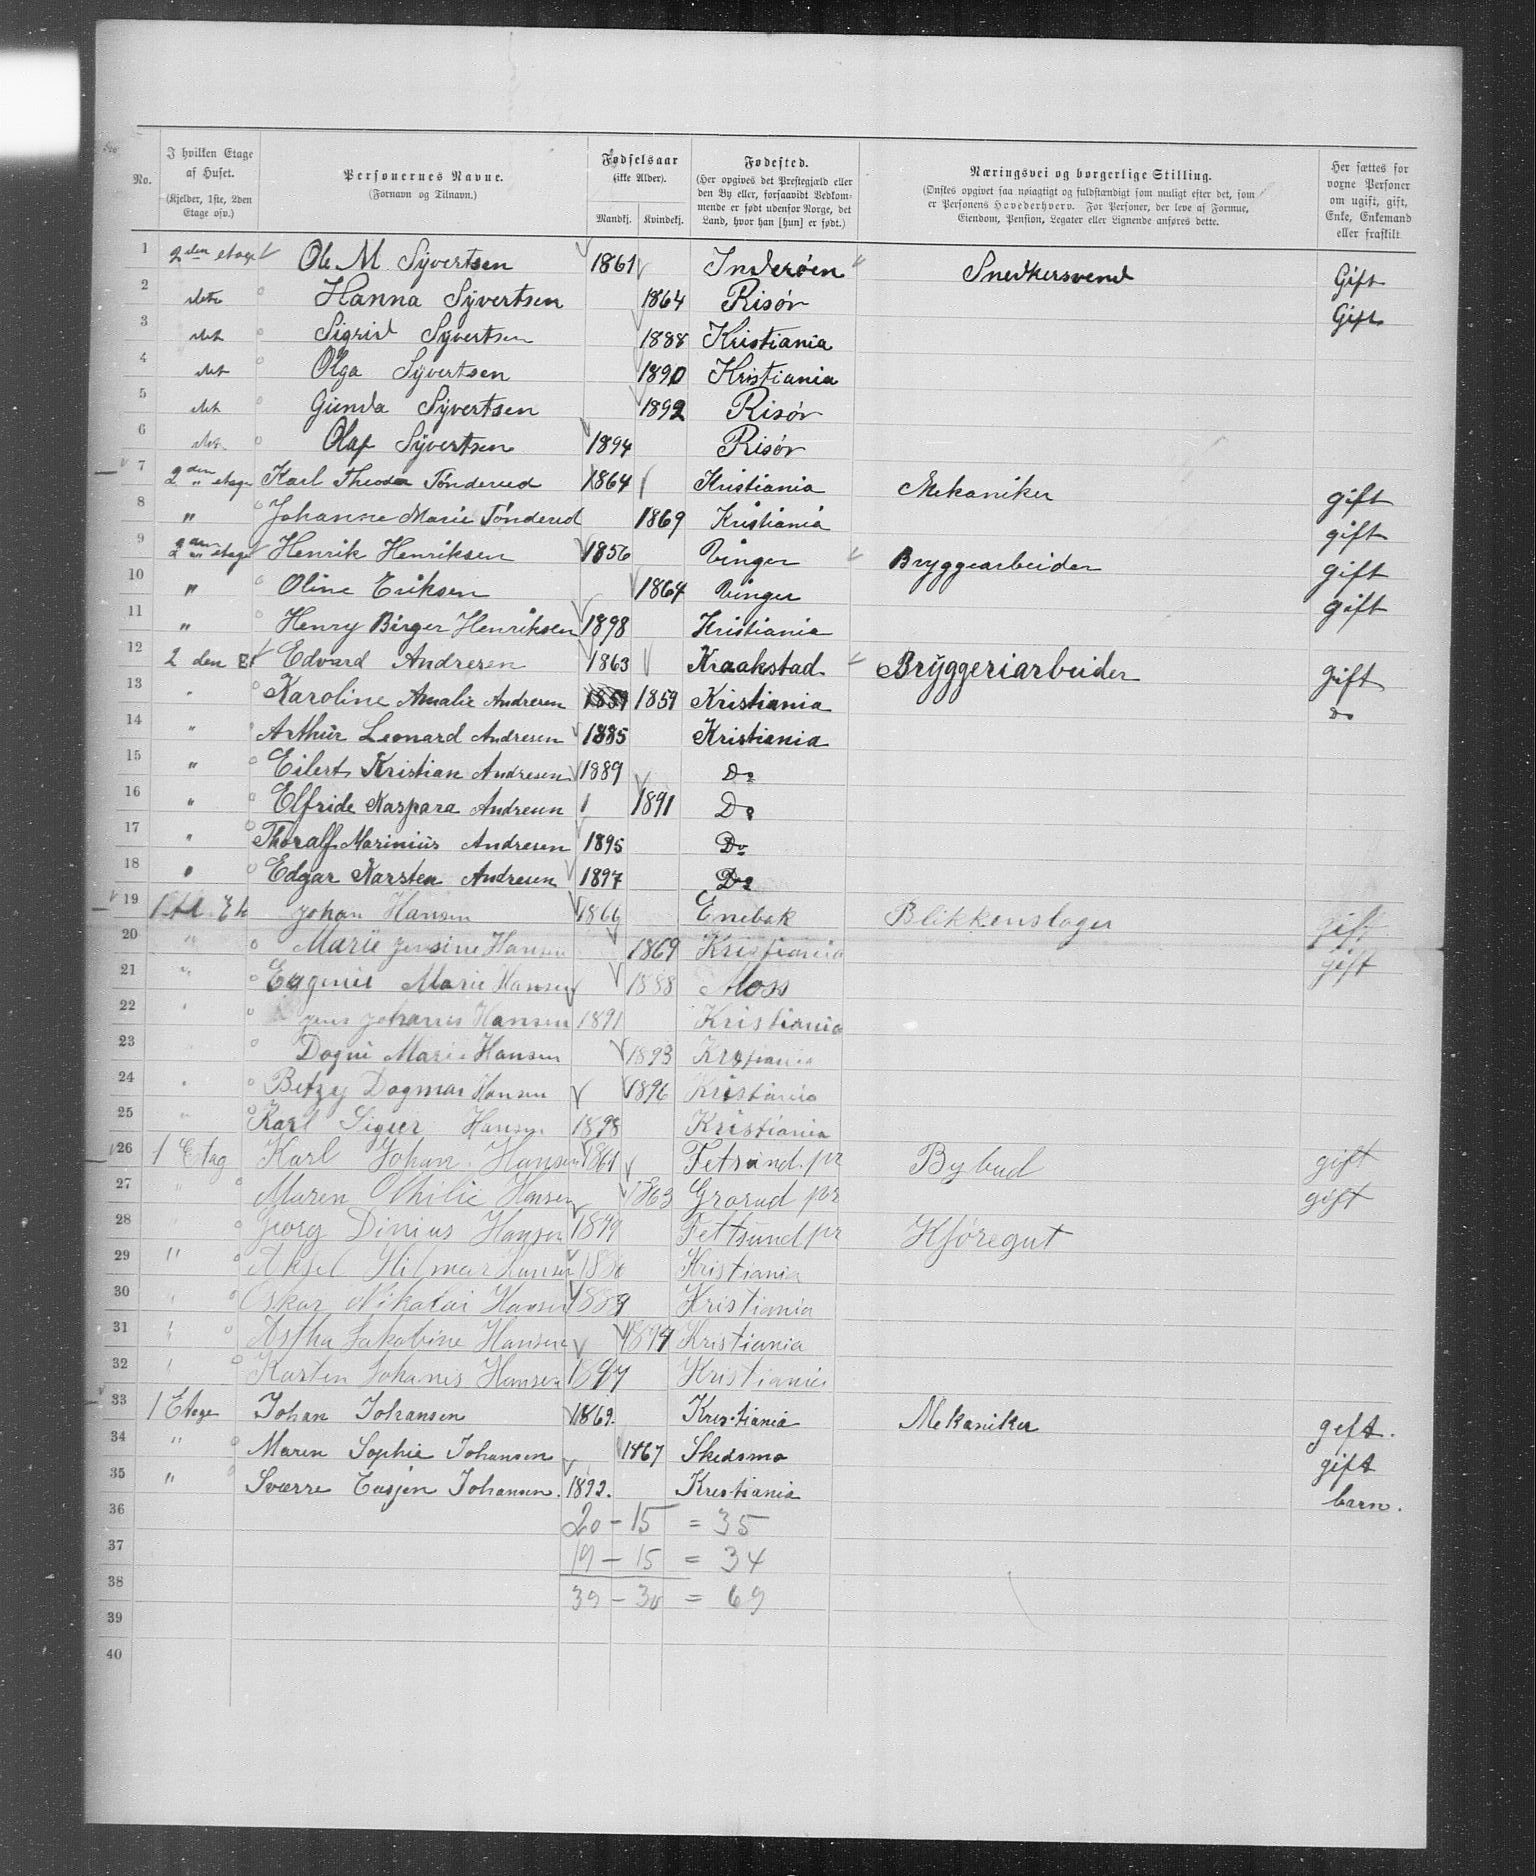 No. | I hvilken Etage af Huset. (Kjelder, 1ste, 2den Etage osv.) | Personernes Navne. (Fornavn og Tilnavn.) | Fødselsaar (ikke Alder). Mandkj. Kvindekj. | Fødested. (Her opgives det Prestegjæld eller den By eller, forsaavidt Vedkommende er født udenfor Norge, det Land, hvor han [hun] er født.) | Næringsvei og borgerlige Stilling. (Ønskes opgivet saa nøiagtigt og fuldstændigt som muligt efter det, som er Personens Hovederhverv. For Personer, der leve af Formue, Eiendom, Pension, Legater eller Lignende anføres dette. | Her sættes for voxne Personer om ugift, gift, Enke, Enkemand eller fraskilt.
1 2den etage Ole M. Syvertsen 1861 Inderøen Snedkersvend Gift
2 dete Hanna Syvertsen 1864 Risør Gift
3 det Sigrid Syvertsen 1888 Kristiania
4 det Olga Syvertsen 1890 Kristiania
5 det Gunda Syvertsen 1892 Risør
6 det Olaf Syvertsen 1894 Risør
7 2den etage Karl Theodor Tønderud 1864 Kristiania Mekaniker gift
8 " Johanne Marie Tønderud 1869 Kristiania gift
9 2den etage Henrik Henriksen 1856 Vinger Bryggearbeider gift
10 " Oline Eriksen 1864 Vinger gift
11 " Henry Birger Henriksen 1898 Kristiania
12 2 den Et Edvard Andresen 1863 Kraakstad Bryggeriarbeider gift
13 " Karoline Amalie Andresen 1859 1859 Kristiania Do
14 " Arthur Leonard Andresen 1885 Kristiania
15 " Eilert Kristian Andresen 1889 Do
16 " Elfride Kaspara Andresen 1 1891 Do
17 " Thoralf Marinius Andresen 1895 Do
18 " Edgar Karsten Andresen 1897 Do
19 Johan Hansen 1866 Enebak Blikkenslager gift
20 " Marie Jensine Hansen 1869 Kristiania gift
21 " Eugenie Marie Hansen 1888 Moss
22 " Jens Johannes Hansen 1891 Kristiania
23 Dagni Marie Hansen 1893 Kristiania
24 " Betzy Dagmar Hansen 1896 Kristiania
25 " Karl Sigur Hansen 1898 Kristiania
26 1 Etag Karl Johan Hansen 1861 Fetsund pr Bybud gift
27 " Maren Othilie Hansen 1863 Grorud pr gift
28 Georg Dinius Hansen 1879 Fettsund pr Kjøregut
29 " Aksel Hilmar Hansen Kristiania
30 " Oskar Nikolai Hansen 1889 Kristiania
31 " Astha Jakobine Hansen 1894 Kristiania
32 " Karsten Johanis Hansen 1897 Kristiania
33 1 Etage Johan Johansen 1869. Kristiania Mekaniker gift.
34 " Maren Sophie Johansen 1867 Skedsmo gift
35 " Sverre Johansen. 1892. Kristiania barn.
36 20 - 15 = 35
37 19 - 15 = 34
38 39 - 30 = 69
39
40